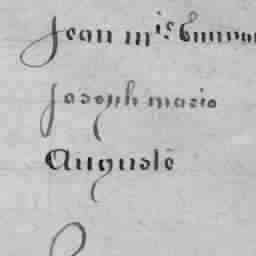 Jean m.is
joseph marie
Auguste